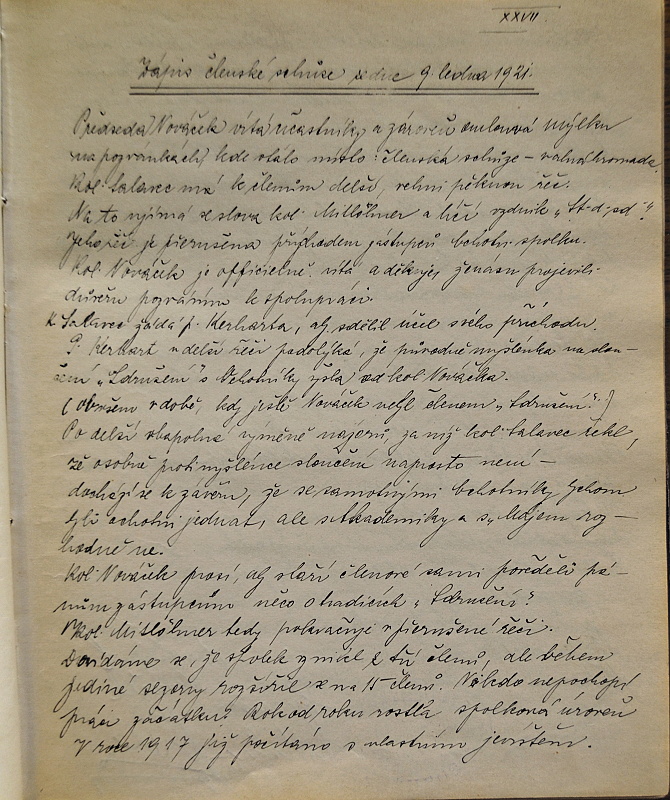 XXVII
Zápis členské schůze ze dne 9. ledna 1921.
Předseda Nováček vítá účastníky a zároveň omlouvá mýlku
na pozvánkách, kde stálo místo: členská schůze – valná hromada.
Kol. Salavec má k členům delší, velmi pěknou řeč.
Na to ujímá se slova kol. Mitlöhner a líčí vznik „St-d-sd“.
Jeho řeč je přerušena příchodem zástupců ochotn. spolku.
Kol. Nováček je officielně vítá a děkuje, že nám projevili
důvěru pozváním k spolupráci.
K. Salavec žádá p. Kerharta, aby sdělil účel svého příchodu.
P. Kerhart v delší řeči podotýká, že původně myšlénka na slou-
čení „Sdružení“ s Ochotníky vyšla od kol. Nováčka.
(Ovšem v době, kdy ještě Nováček nebyl členem „Sdružení“.)
Po delší výměně názorů, za níž kol. Salavec řekl,
že osobně proti myšlénce sloučení naprosto není –
dochází se k závěru, že se samotnými ochotníky bychom
byli ochotni jednat, ale s Akademiky a s „Májem“ roz-
hodně ne.
Kol. Nováček prosí, aby staří členové sami pověděli pá-
nům zástupcům něco o tradicích „Sdružení“.
Kol. Mitlöhner tedy pokračuje v přerušené řeči.
Dovídáme se, že spolek vznikl z tří členů, ale během
jediné sezony rozšířil se na 15 členů. Nikdo nepochopí
práci začátku! Rok od roku rostla spolková úroveň
V roce 1917 již počítáno s vlastním jevištěm.